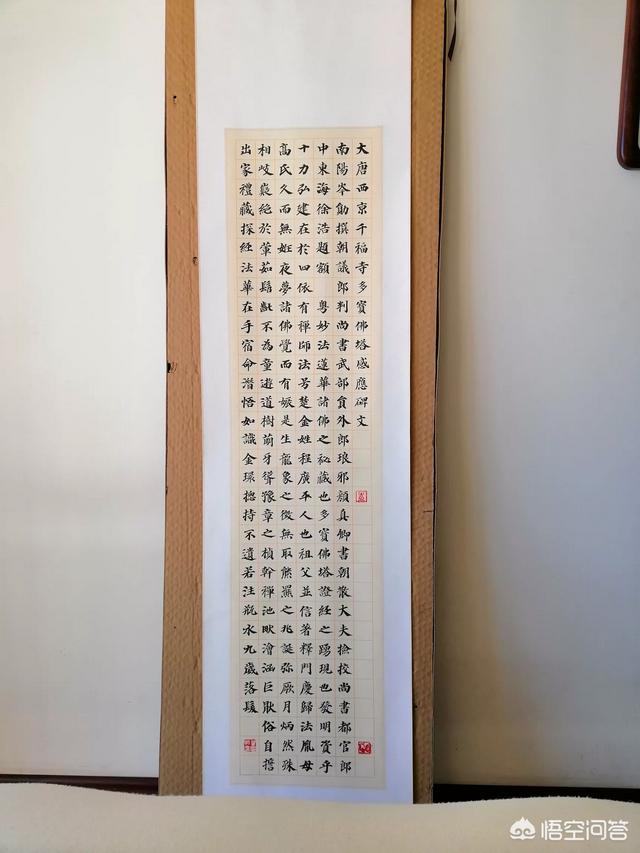 大唐西京千福寺多寶佛塔感應碑文
南陽岑勛撰朝議郎判尚書武部員外郎琅邪顏真卿書朝散大夫撿挍尚書都官郎
中東海徐浩題額 粵妙法蓮華諸佛之秘藏也多寶佛塔證經之踴現也發明資乎
十力弘建在於四依有禪師法号楚金姓程廣平人也祖父並信著釋門慶歸法胤母
高氏久而無姙夜夢諸佛覺而有娠是生龍象之徵無取熊羆之兆誕弥厥月炳然殊
相岐嶷絕於葷茹髫齔不為童遊道樹萌牙聳豫章之楨幹禪池畎澮涵巨猒俗自誓
出家禮藏探經法華在手宿命潛悟如識金環揔持不遺若注瓶水九歲落髮
悟空问答